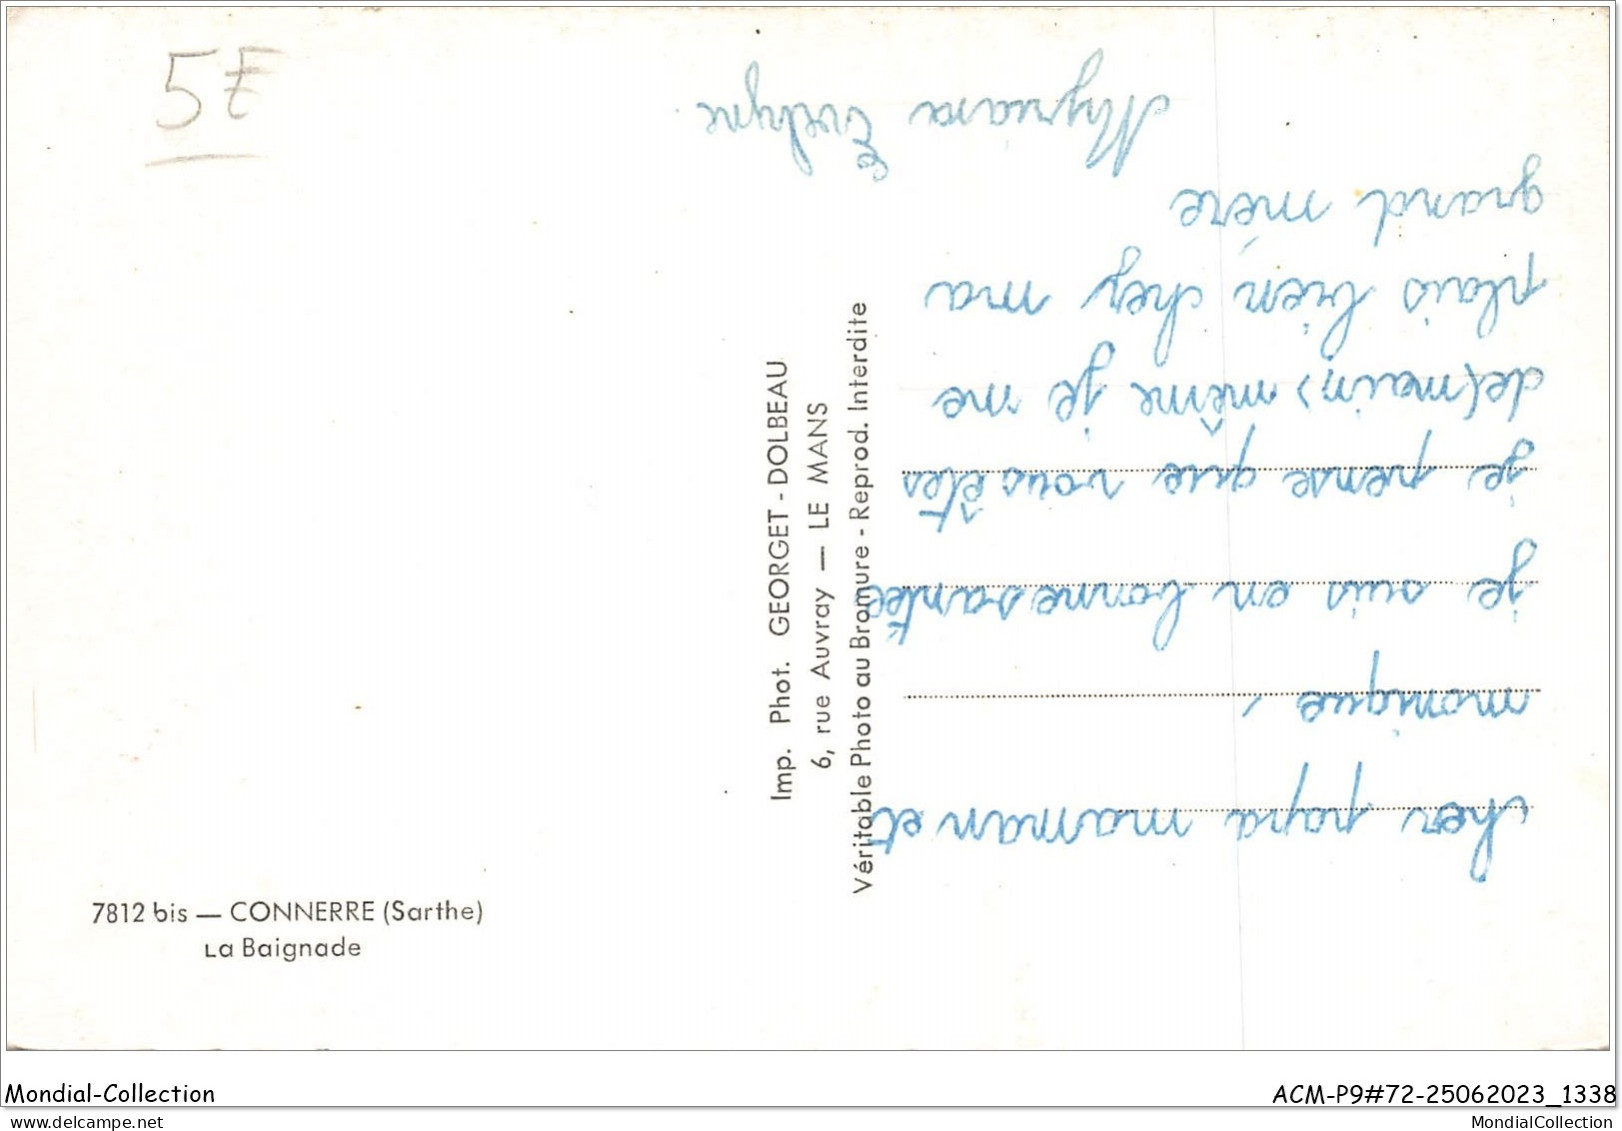 5F
cher papa maman et
monique,
je suis en bonne santée
je pense que vous êtes
de(main) même je me
plais bien chez ma
grand mère
Myriam Evelyne
Imp. Phot. GEORGET - DOLBEAU
6, rue Auvray — LE MANS
Véritable Photo au Bromure - Reprod. Interdite
7812 bis — CONNERRE (Sarthe)
La Baignade
Mondial-Collection
ACM-P9#72-25062023_1338
mondialcollection.delcampe.net
MondialCollection